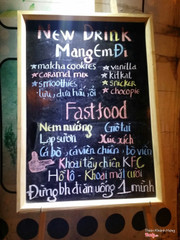 New Drink
Mang Em Đi
★ matcha cookies ★ vanilla
★ caramel mix ★ kitkat
★ smoothies ★ snicker
lựu, dứa, ổi ★ chocopie
Fastfood
Nem nướng Giò lại
Lạp sườn Xúc xích
Cá bò, cá viên chiên, bò viên
Khoai tây chiên KFC
Hồ lô - Khoai mật cười
Đừng bh đi ăn uống 1 mình